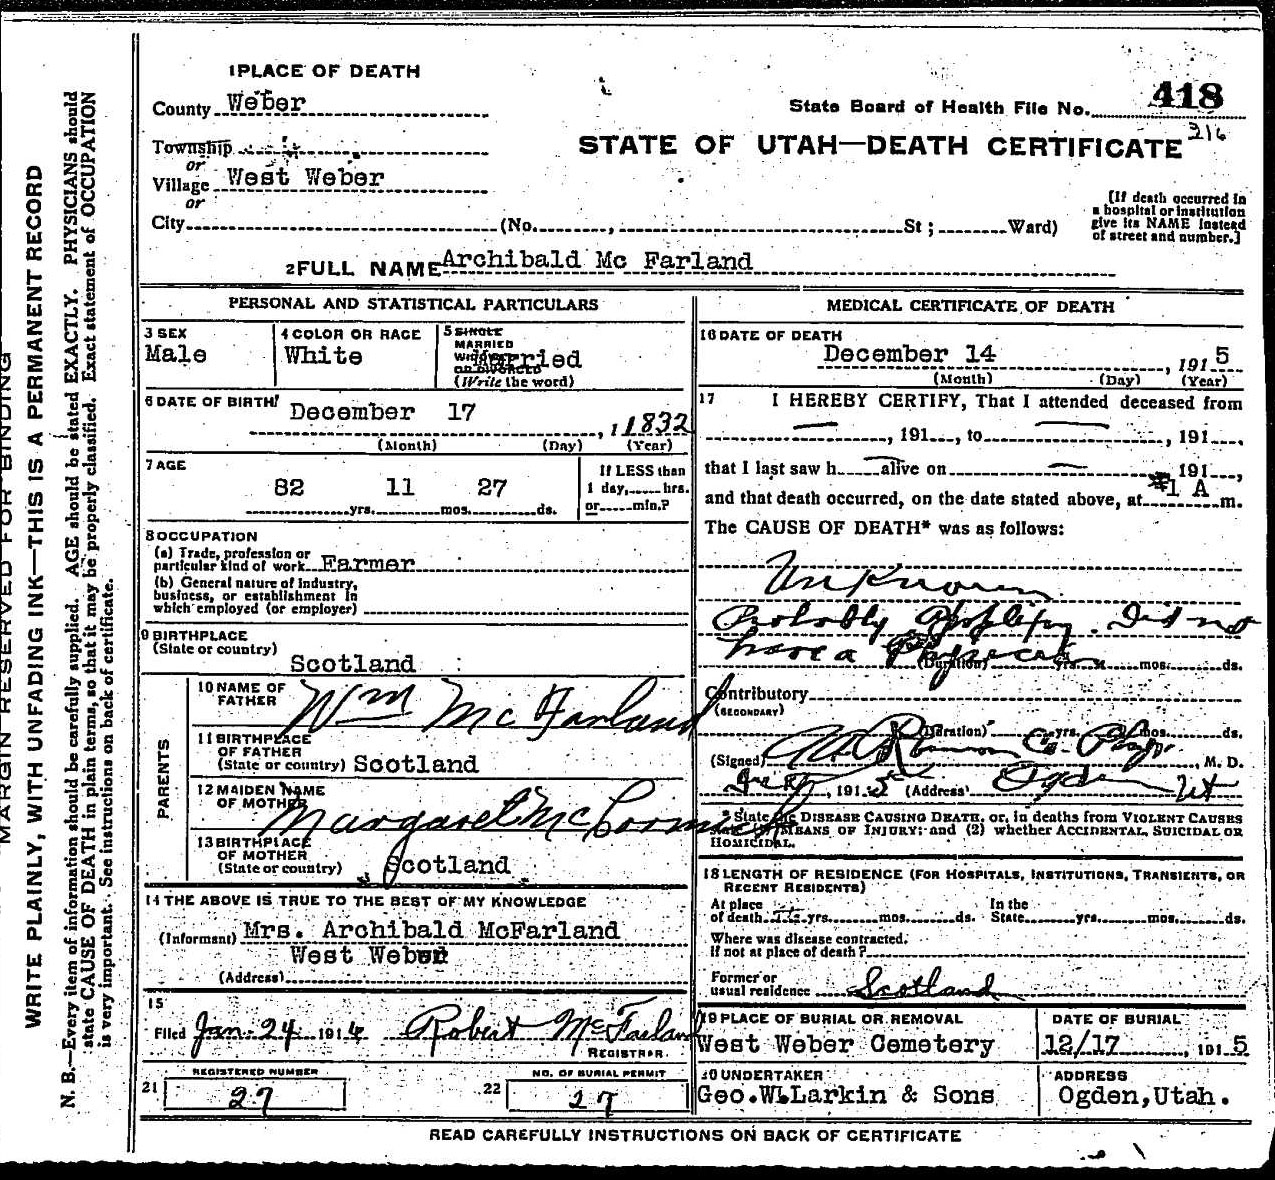 MARGIN RESERVED FOR BINDING
WRITE PLAINLY, WITH UNFADING INK—THIS IS A PERMANENT RECORD
N. B.—Every item of information should be carefully supplied. AGE should be stated EXACTLY. PHYSICIANS should
state CAUSE OF DEATH in plain terms, so that it may be properly classified. Exact statement of OCCUPATION
is very important. See instructions on back of certificate.
1 PLACE OF DEATH
County Weber
State Board of Health File No. 418
316
STATE OF UTAH—DEATH CERTIFICATE
Township
or
Village West Weber
or
City (No. , St ; Ward)
[If death occurred in
a hospital or institution
give its NAME instead
of street and number.]
2 FULL NAME Archibald Mc Farland
PERSONAL AND STATISTICAL PARTICULARS
3 SEX
Male
4 COLOR OR RACE
White
5 SINGLE
MARRIED
WIDOWED
OR DIVORCED
(Write the word)
Married
6 DATE OF BIRTH
December 17 , 1 1832
(Month) (Day) (Year)
7 AGE
82 yrs. 11 mos. 27 ds.
If LESS than
1 day, hrs.
or min.?
8 OCCUPATION
(a) Trade, profession or
particular kind of work Farmer
(b) General nature of industry,
business, or establishment in
which employed (or employer)
9 BIRTHPLACE
(State or country)
Scotland
PARENTS
10 NAME OF
FATHER
Wm McFarland
11 BIRTHPLACE
OF FATHER
(State or country) Scotland
12 MAIDEN NAME
OF MOTHER
Margaret McCormick
13 BIRTHPLACE
OF MOTHER
(State or country) Scotland
14 THE ABOVE IS TRUE TO THE BEST OF MY KNOWLEDGE
(Informant) Mrs. Archibald McFarland
West Weber
(Address)
15
Filed Jan. 24 1916 Robert McFarland
REGISTRAR
REGISTERED NUMBER
21 27
NO. OF BURIAL PERMIT
22 27
MEDICAL CERTIFICATE OF DEATH
16 DATE OF DEATH
December 14 , 191 5
(Month) (Day) (Year)
17 I HEREBY CERTIFY, That I attended deceased from
, 191 , to , 191 ,
that I last saw h alive on 191 ,
and that death occurred, on the date stated above, at 1 A m.
The CAUSE OF DEATH* was as follows:
Unknown
Probably Apoplexy. Did not
have a Physician
(Duration) yrs. mos. ds.
Contributory
(SECONDARY)
(Duration) yrs. mos. ds.
(Signed) Co. Phys. , M. D.
, 191 5 (Address) Ogden Ut
* State the DISEASE CAUSING DEATH, or, in deaths from VIOLENT CAUSES
state (1) MEANS OF INJURY; and (2) whether ACCIDENTAL, SUICIDAL OR
HOMICIDAL.
18 LENGTH OF RESIDENCE (FOR HOSPITALS, INSTITUTIONS, TRANSIENTS, OR
RECENT RESIDENTS)
At place
of death yrs. mos. ds.
In the
State yrs. mos. ds.
Where was disease contracted.
if not at place of death?
Former or
usual residence Scotland
19 PLACE OF BURIAL OR REMOVAL
West Weber Cemetery
DATE OF BURIAL
12/17 , 191 5
20 UNDERTAKER
Geo.W.Larkin & Sons
ADDRESS
Ogden,Utah.
READ CAREFULLY INSTRUCTIONS ON BACK OF CERTIFICATE